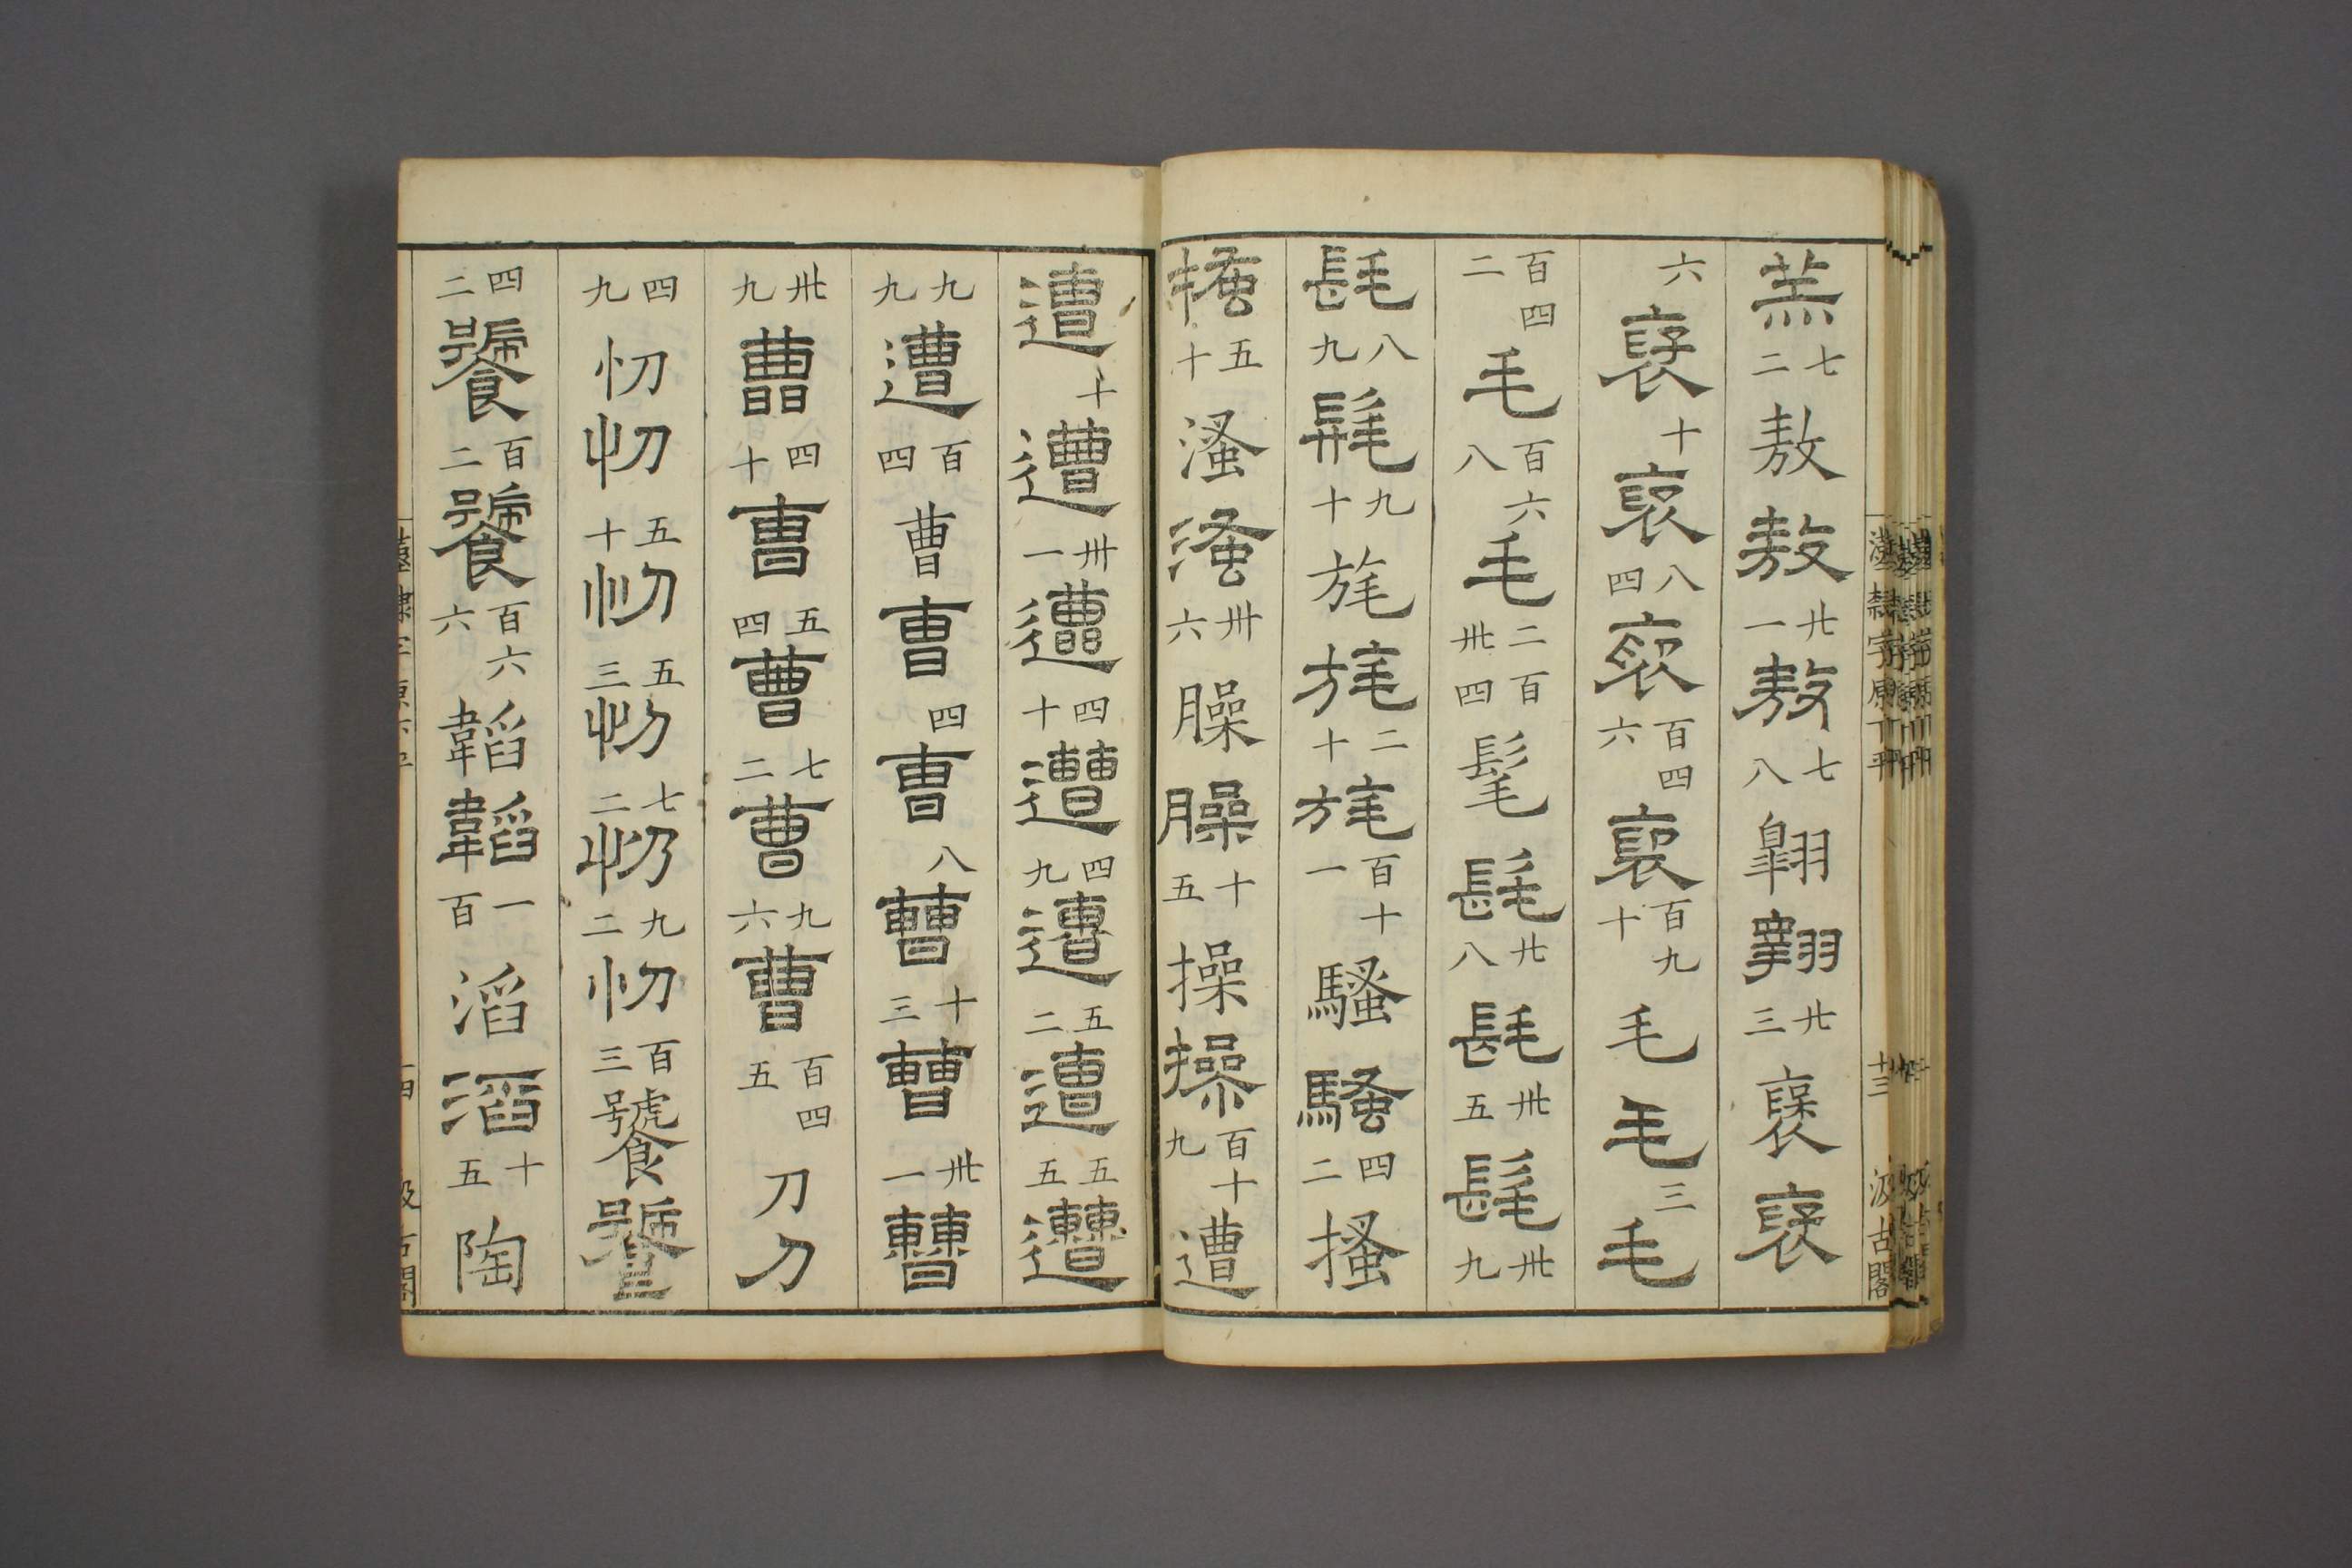 羔七二敖敖廿一敖七八翱翱廿三褒褒
六褒十褒八四褒百四六褒百九十毛毛三毛
百四二毛百六八毛二百卅四髦髦廿八髦卅五髦卅九
髦八九髦九十旄旄二十旄百十一騷騷四二搔
搔五十溞溞卅六臊臊十五操操百十九遭
遭十遭卅一遭四十遭四九遭五二遭五五遭
九九遭百四曹曹四曹八曹十三曹卅一曹
卅九曹四十曹五四曹七二曹九六曹百四五刀刀
四九忉忉五十忉五三忉七二忉九二忉百三饕饕
四二饕百二饕百六六韜韜一百滔滔十五陶
漢隸字原 十三 汲古閣
汲古閣